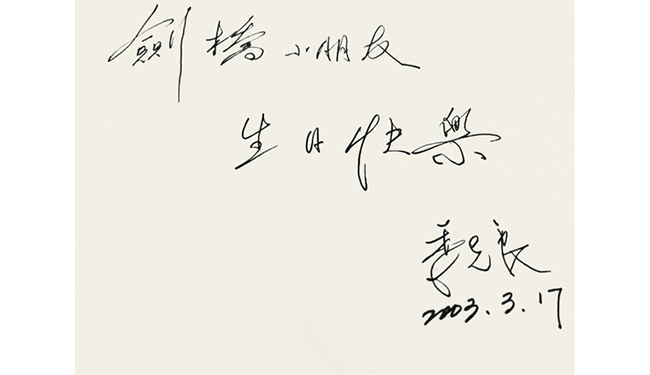 劍橋小朋友
生日快樂
季克良
2003.3.17